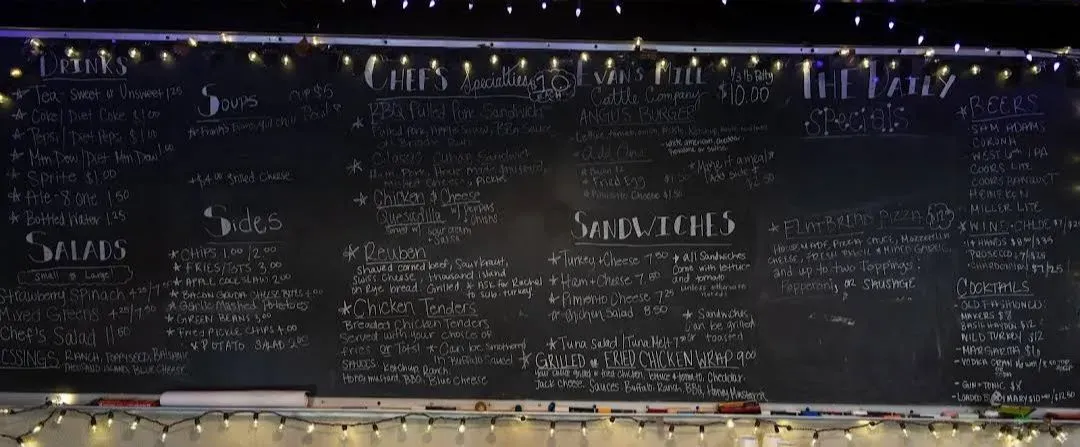 DRINKS
★ Tea - Sweet or Unsweet 1.25
★ Coke / Diet Coke $1.00
★ Pepsi / Diet Pepsi $1.00
★ Mtn Dew / Diet Mtn Dew 1.00
★ Sprite $1.00
★ Ale-8 One 1.50
★ Bottled Water 1.25
SALADS
Small & Large
Strawberry Spinach 4.25/7
Mixed Greens 4.25/7.50
Chef's Salad 11.50
SSINGS: RANCH, POPPYSEED, BALSAMIC
THOUSAND ISLAND, BLUE CHEESE
SOUPS
CUP $5
+$4.00 Grilled Cheese
SIDES
★ CHIPS 1.00 / 2.00
★ FRIES/TOTS 3.00
★ APPLE COLESLAW 2.00
★ BACON GOUDA CHEESE BITES 4.00
Mashed Potatoes
★ GREEN BEANS 3.00
★ FRIED PICKLE CHIPS 4.00
★ POTATO SALAD 2.50
CHEF'S Specialties 10
★ BBQ Pulled Pork Sandwich
Pulled Pork, Apple Slaw, BBQ Sauce
★ Classic Cuban Sandwich
Ham, Pork, House Made Mustard,
Swiss Cheese, Pickle
★ Chicken & Cheese
Quesadilla w/ Peppers
onions
served w/ sour cream
+ salsa
★ Reuben
Shaved corned beef, Saurkraut,
Swiss Cheese, thousand island
on Rye bread. Grilled ★ ASK for Rachel
to sub turkey
★ Chicken Tenders
Breaded Chicken Tenders
Served with Your Choice of
fries or Tots! ★ Can be Smothered
in Buffalo Sauce!
SAUCES: Ketchup, Ranch,
Honey mustard, BBQ, Blue Cheese
EVAN'S MILL
Cattle Company
ANGUS BURGER
1/3 lb Patty
$10.00
Add Ons
★ Fried Egg
★ Pimento Cheese $1.50
★ Make it a meal ★
Add Side
$2.50
SANDWICHES
★ Turkey + Cheese 7.50
★ Ham + Cheese 7.50
★ Pimento Cheese 7.25
or Chicken Salad 8.50
★ Tuna Salad / Tuna Melt
★ All Sandwiches
Come with lettuce
and tomato
unless otherwise
noted
★ Sandwiches
can be grilled
or toasted
★ GRILLED or FRIED CHICKEN WRAP 9.00
Your choice grilled or fried chicken, lettuce + tomato, Cheddar,
Jack Cheese. Sauces: Buffalo, Ranch, BBQ, Honey Mustard
THE DAILY
SPECIALS
★ FLATBREAD PIZZA $12
HOUSE MADE, PIZZA SAUCE, MOZZARELLA
CHEESE, FRESH BASIL & FRESH GARLIC
and up to two Toppings:
Pepperoni or SAUSAGE
★ BEERS
SAM ADAMS
CORONA
WEST 6TH IPA
COORS LITE
COORS BANQUET
HEINEKEN
MILLER LITE
PROSECCO
CHARDONNAY $7/$25
COCKTAILS
OLD FASHIONED:
MAKERS $8
BASIL HAYDEN $12
WILD TURKEY $12
- MARGARITA
- VODKA CRAN
- GIN + TONIC $8
- LOADED BLOODY MARY $10.00/$12.50